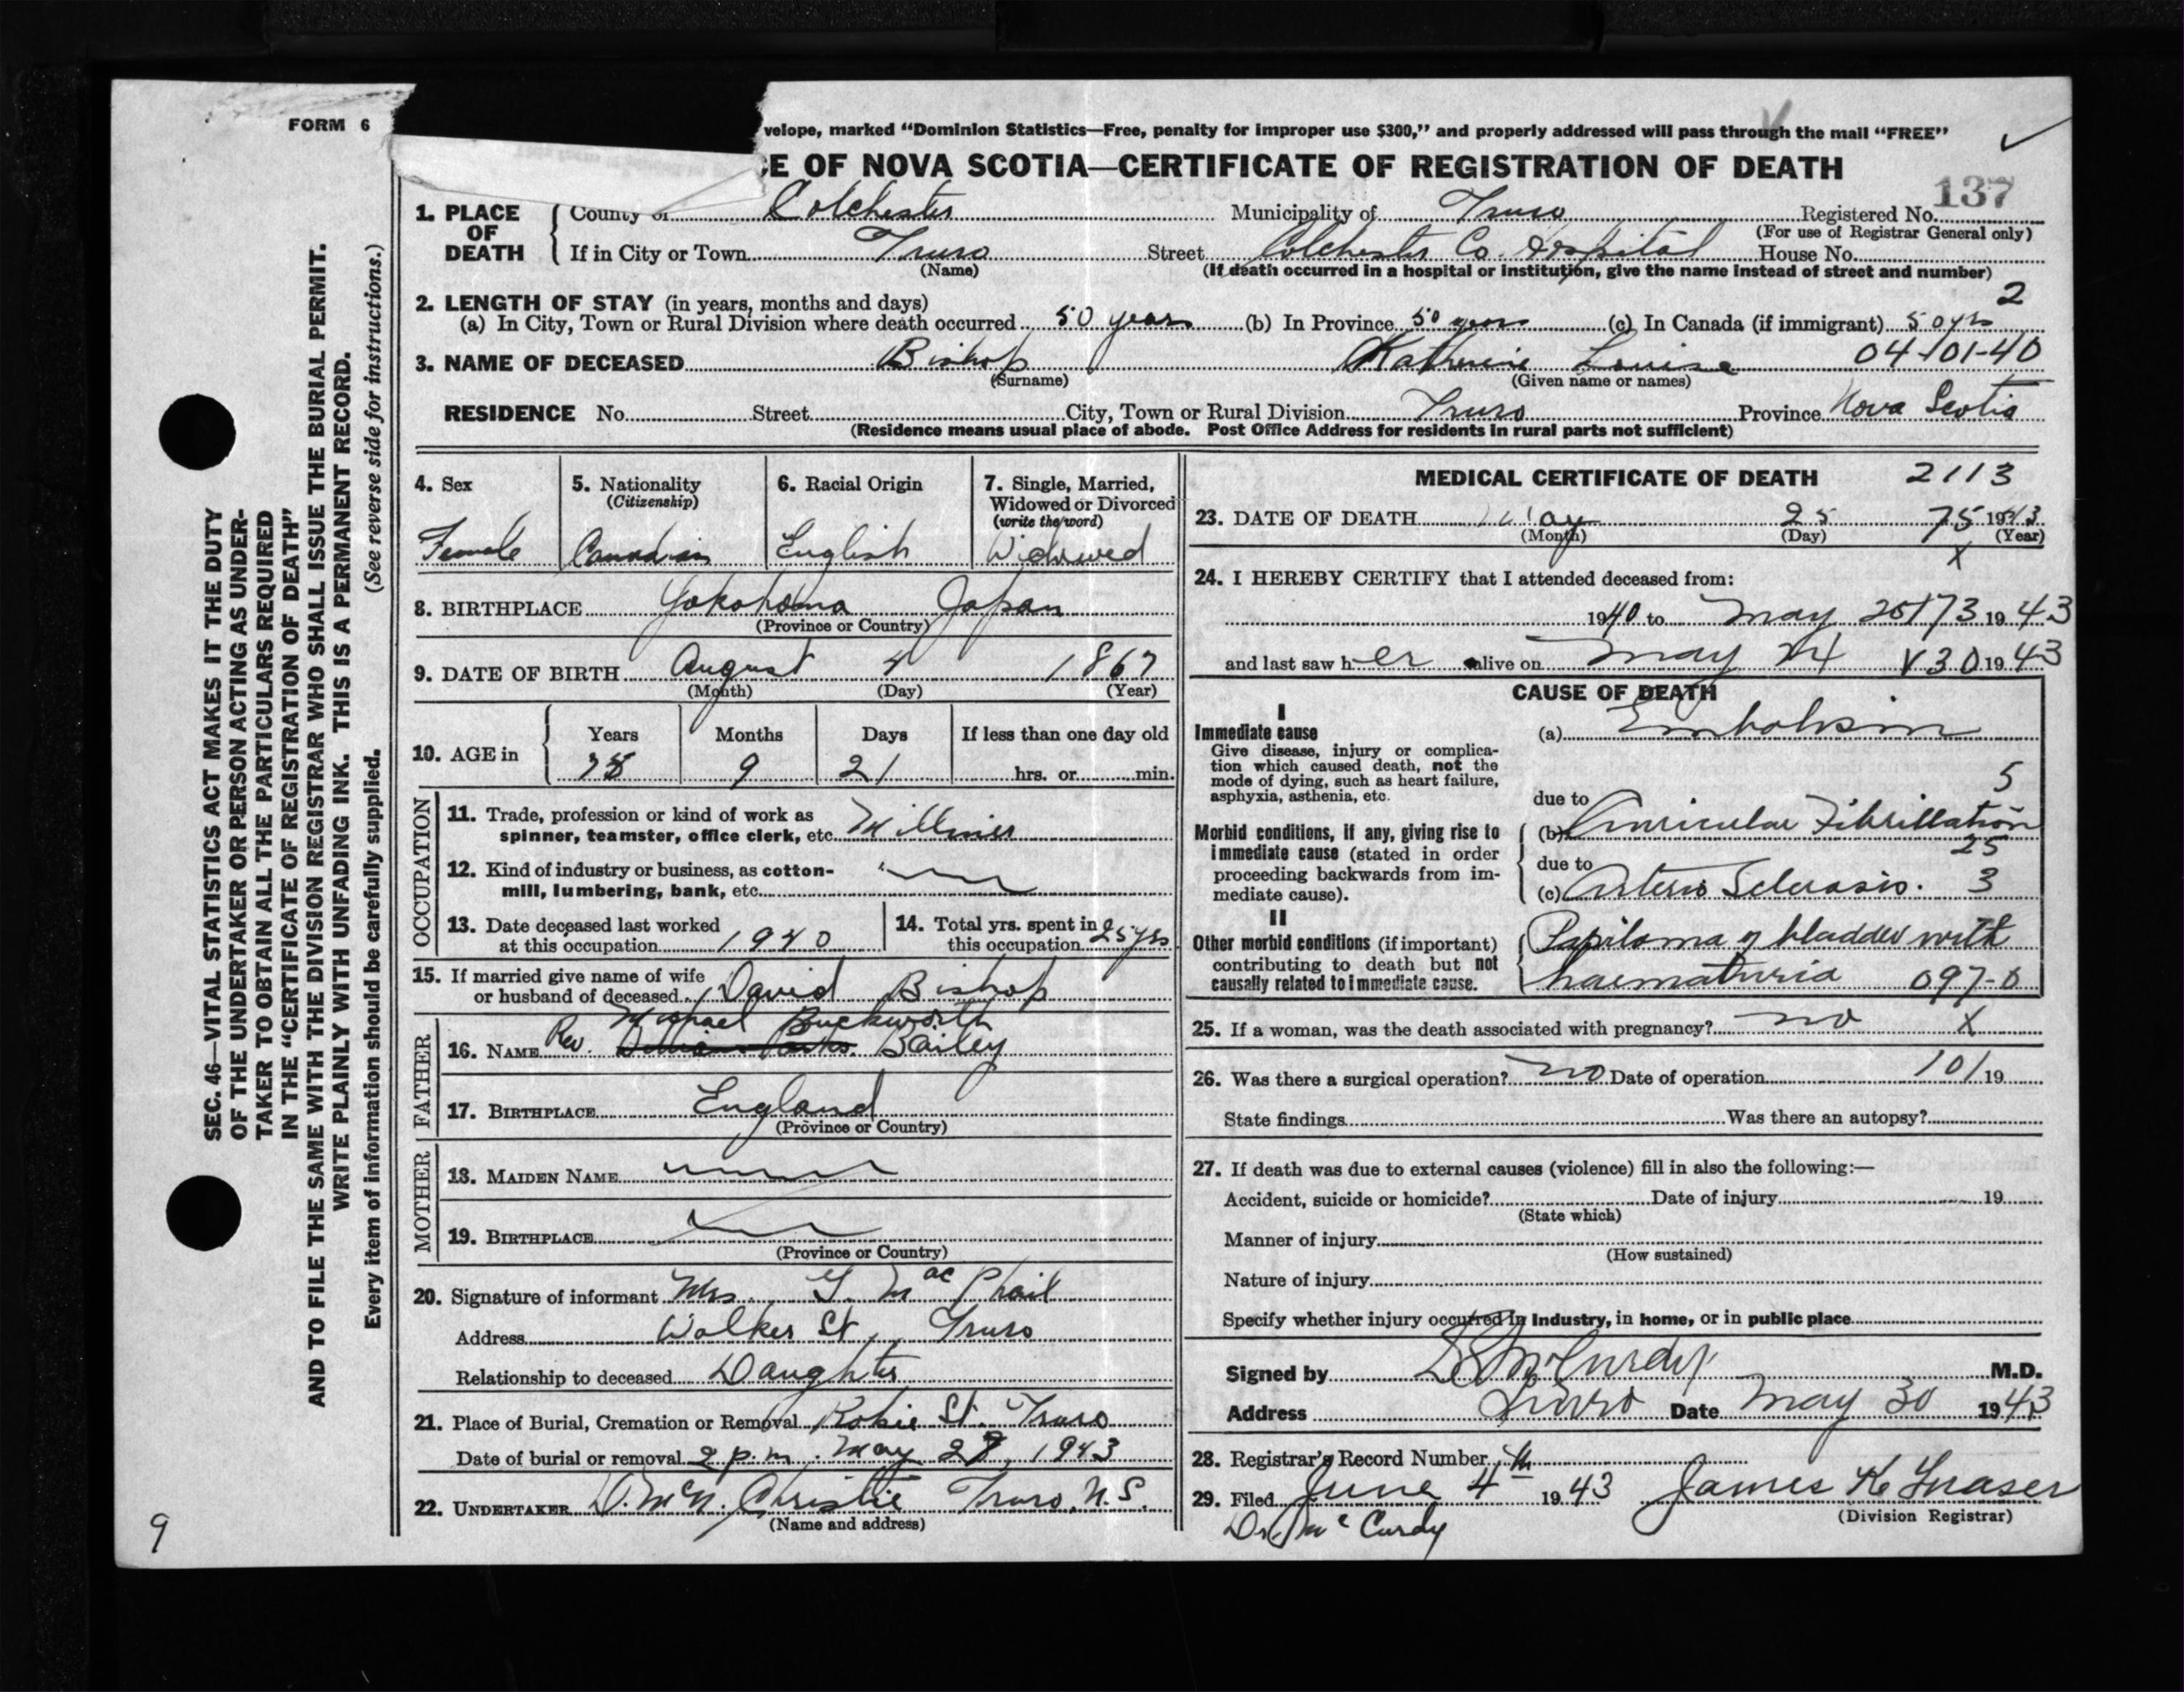 FORM 6
velope, marked "Dominion Statistics—Free, penalty for improper use $300," and properly addressed will pass through the mail "FREE"
CE OF NOVA SCOTIA—CERTIFICATE OF REGISTRATION OF DEATH
137
1. PLACE OF DEATH
County of Colchester Municipality of Truro Registered No.
(For use of Registrar General only)
If in City or Town Truro Street Colchester Co. Hospital House No.
(Name) (If death occurred in a hospital or institution, give the name instead of street and number)
2. LENGTH OF STAY (in years, months and days) 2
(a) In City, Town or Rural Division where death occurred 50 years (b) In Province 50 years (c) In Canada (if immigrant) 50 yrs
3. NAME OF DECEASED Bishop Katherine Louise 04-101-40
(Surname) (Given name or names)
RESIDENCE No. Street City, Town or Rural Division Truro Province Nova Scotia
(Residence means usual place of abode. Post Office Address for residents in rural parts not sufficient)
4. Sex
Female
5. Nationality
(Citizenship)
Canadian
6. Racial Origin
English
7. Single, Married,
Widowed or Divorced
(write the word)
Widowed
8. BIRTHPLACE Yokohama Japan
(Province or Country)
9. DATE OF BIRTH August 4 1867
(Month) (Day) (Year)
10. AGE in
Years Months Days If less than one day old
75 9 21 hrs. or min.
OCCUPATION
11. Trade, profession or kind of work as
spinner, teamster, office clerk, etc. Milliner
12. Kind of industry or business, as cotton-
mill, lumbering, bank, etc.
13. Date deceased last worked
at this occupation 1940
14. Total yrs. spent in
this occupation 25 yrs
15. If married give name of wife
or husband of deceased David Bishop
FATHER
Michael Buckworth
16. NAME Rev. Bailey
17. BIRTHPLACE England
(Province or Country)
MOTHER
18. MAIDEN NAME
19. BIRTHPLACE
(Province or Country)
20. Signature of informant Mrs. G. MacPhail
Address Walker St, Truro
Relationship to deceased Daughter
21. Place of Burial, Cremation or Removal Robie St. Truro
Date of burial or removal 2 p.m. May 27, 1943
22. UNDERTAKER D. McN. Christie Truro, N.S.
(Name and address)
MEDICAL CERTIFICATE OF DEATH 2113
23. DATE OF DEATH May 25 75 1943
(Month) (Day) (Year)
X
24. I HEREBY CERTIFY that I attended deceased from:
1940 to May 25 173 1943
and last saw her alive on May 24 V30 1943
CAUSE OF DEATH
I
Immediate cause
Give disease, injury or complica-
tion which caused death, not the
mode of dying, such as heart failure,
asphyxia, asthenia, etc.
(a) Embolism
5
due to
Morbid conditions, if any, giving rise to
immediate cause (stated in order
proceeding backwards from im-
mediate cause).
(b) Auricular Fibrillation
25
due to
(c) Arterio Sclerosis. 3
II
Other morbid conditions (if important)
contributing to death but not
causally related to immediate cause.
Papiloma of bladder with
haematuria 097-0
25. If a woman, was the death associated with pregnancy? no X
26. Was there a surgical operation? no Date of operation 101 19
State findings Was there an autopsy?
27. If death was due to external causes (violence) fill in also the following:—
Accident, suicide or homicide? Date of injury 19
(State which)
Manner of injury
(How sustained)
Nature of injury
Specify whether injury occurred in industry, in home, or in public place
Signed by D S McCurdy M.D.
Address Truro Date May 30 1943
28. Registrar's Record Number
29. Filed June 4th 1943 James K. Fraser
(Division Registrar)
Dr. McCurdy
SEC. 46—VITAL STATISTICS ACT MAKES IT THE DUTY
OF THE UNDERTAKER OR PERSON ACTING AS UNDER-
TAKER TO OBTAIN ALL THE PARTICULARS REQUIRED
IN THE "CERTIFICATE OF REGISTRATION OF DEATH"
AND TO FILE THE SAME WITH THE DIVISION REGISTRAR WHO SHALL ISSUE THE BURIAL PERMIT.
WRITE PLAINLY WITH UNFADING INK. THIS IS A PERMANENT RECORD.
Every item of information should be carefully supplied. (See reverse side for instructions.)
9